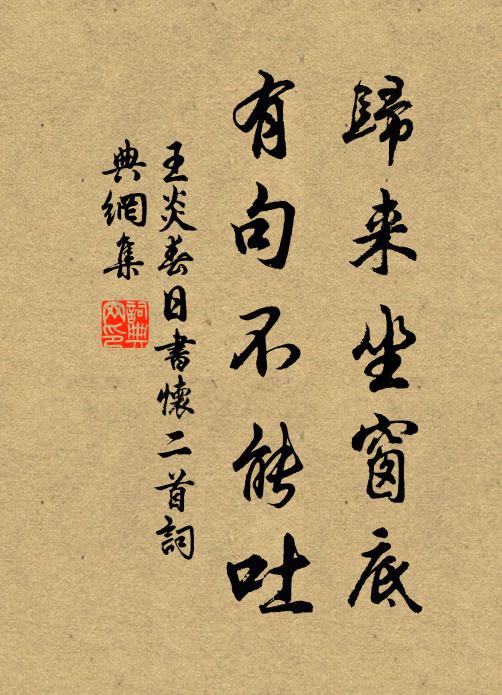 歸来坐窗底
有句不能吐
王炎春日書懷二首詞
典網集
詞典
网印